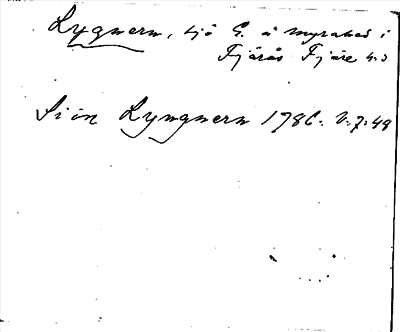 Lygnern, sjö G. å Myrabad i
Fjärås Fjäre hd
Siön Lyngnern 1786. V:7:49